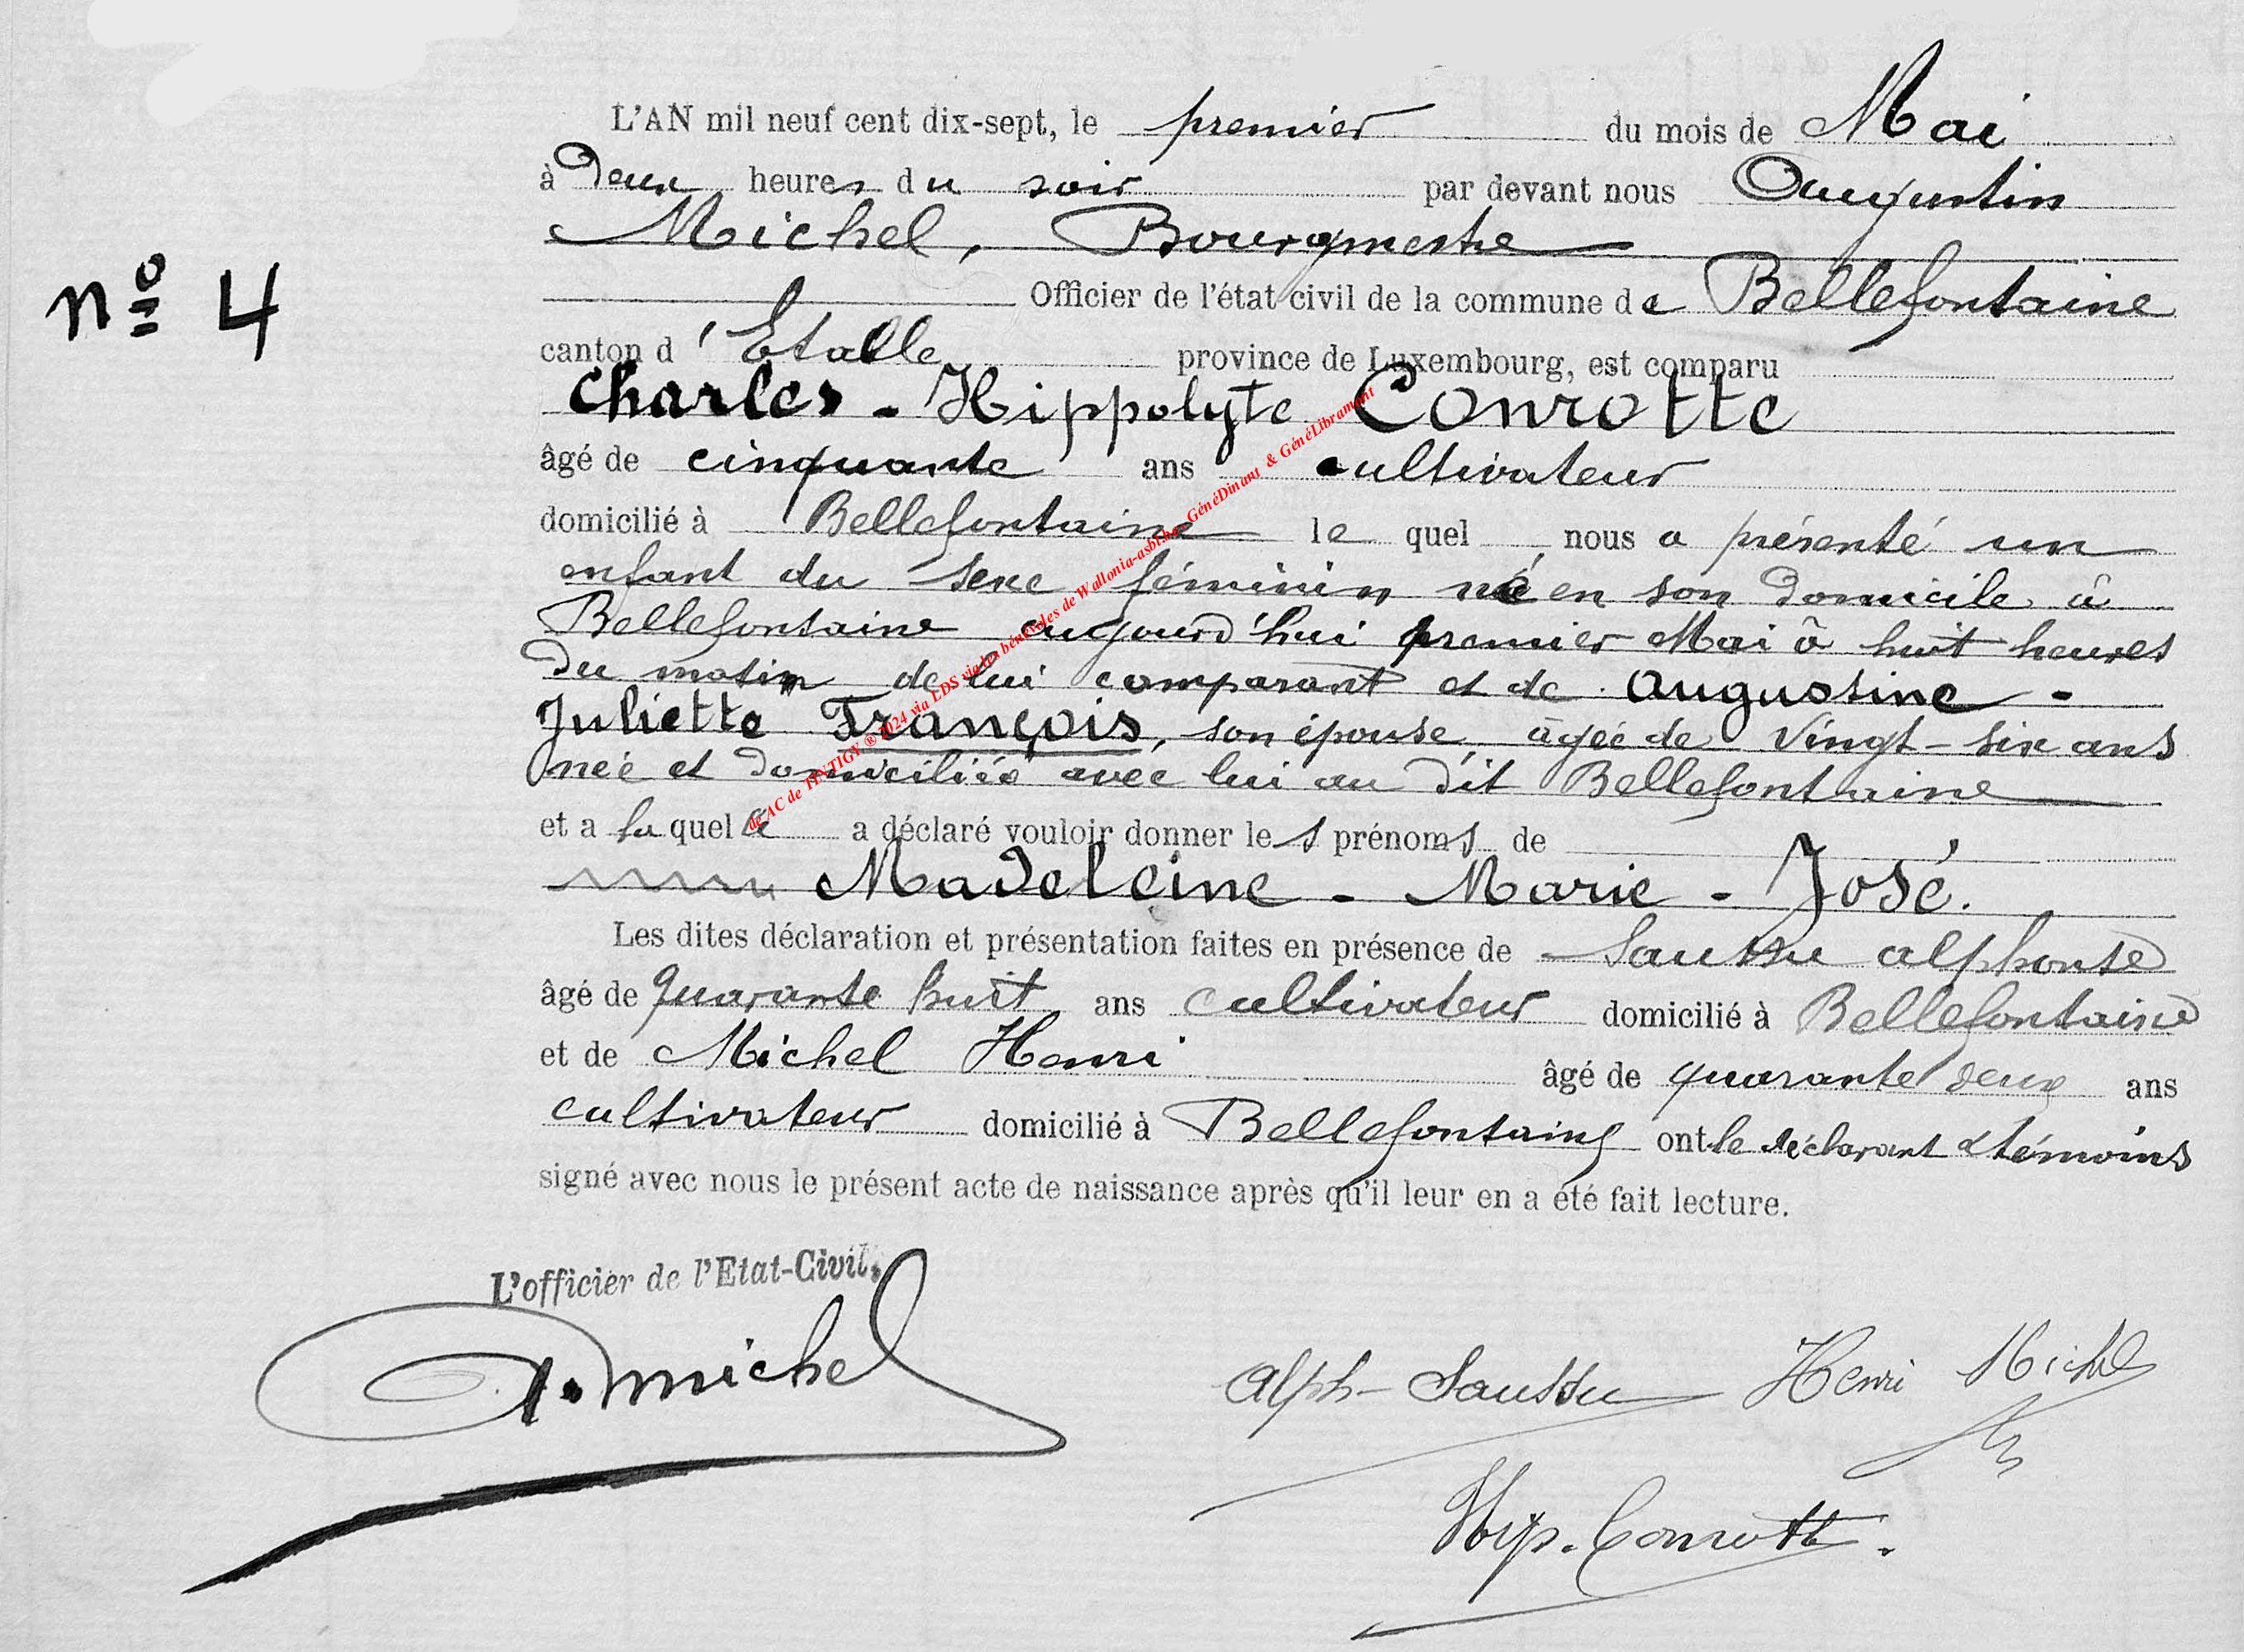 L'AN mil neuf cent dix-sept, le premier du mois de Mai
à Deux heures du soir par devant nous Augustin
Michel, Bourgmestre
nº 4
Officier de l'état civil de la commune de Bellefontaine
canton d'Etalle province de Luxembourg, est comparu
Charles - Hippolyte Conrotte
âgé de cinquante ans cultivateur
domicilié à Bellefontaine le quel nous a présenté un
enfant du sexe féminin né en son domicile à
Bellefontaine aujourd'hui premier Mai à huit heures
du matin de lui comparant et de Augustine -
Juliette François, son épouse, âgée de vingt-six ans
née et domiciliée avec lui au dit Bellefontaine
et a laquelle a déclaré vouloir donner les prénoms de
Madeleine - Marie - José.
Les dites déclaration et présentation faites en présence de Saussu alphonse
âgé de quarante huit ans cultivateur domicilié à Bellefontaine
et de Michel Henri âgé de quarante deux ans
cultivateur domicilié à Bellefontaine ont le déclarant & témoins
signé avec nous le présent acte de naissance après qu'il leur en a été fait lecture.
L'officier de l'Etat-Civil,
A. Michel
Alph- Saussu Henri Michel
Hyp. Conrotte.
de AC de TINTIGY ® 2024 via LDS via les bénévoles de Wallonia-asbl.be GénéDinant & GénéLibramont